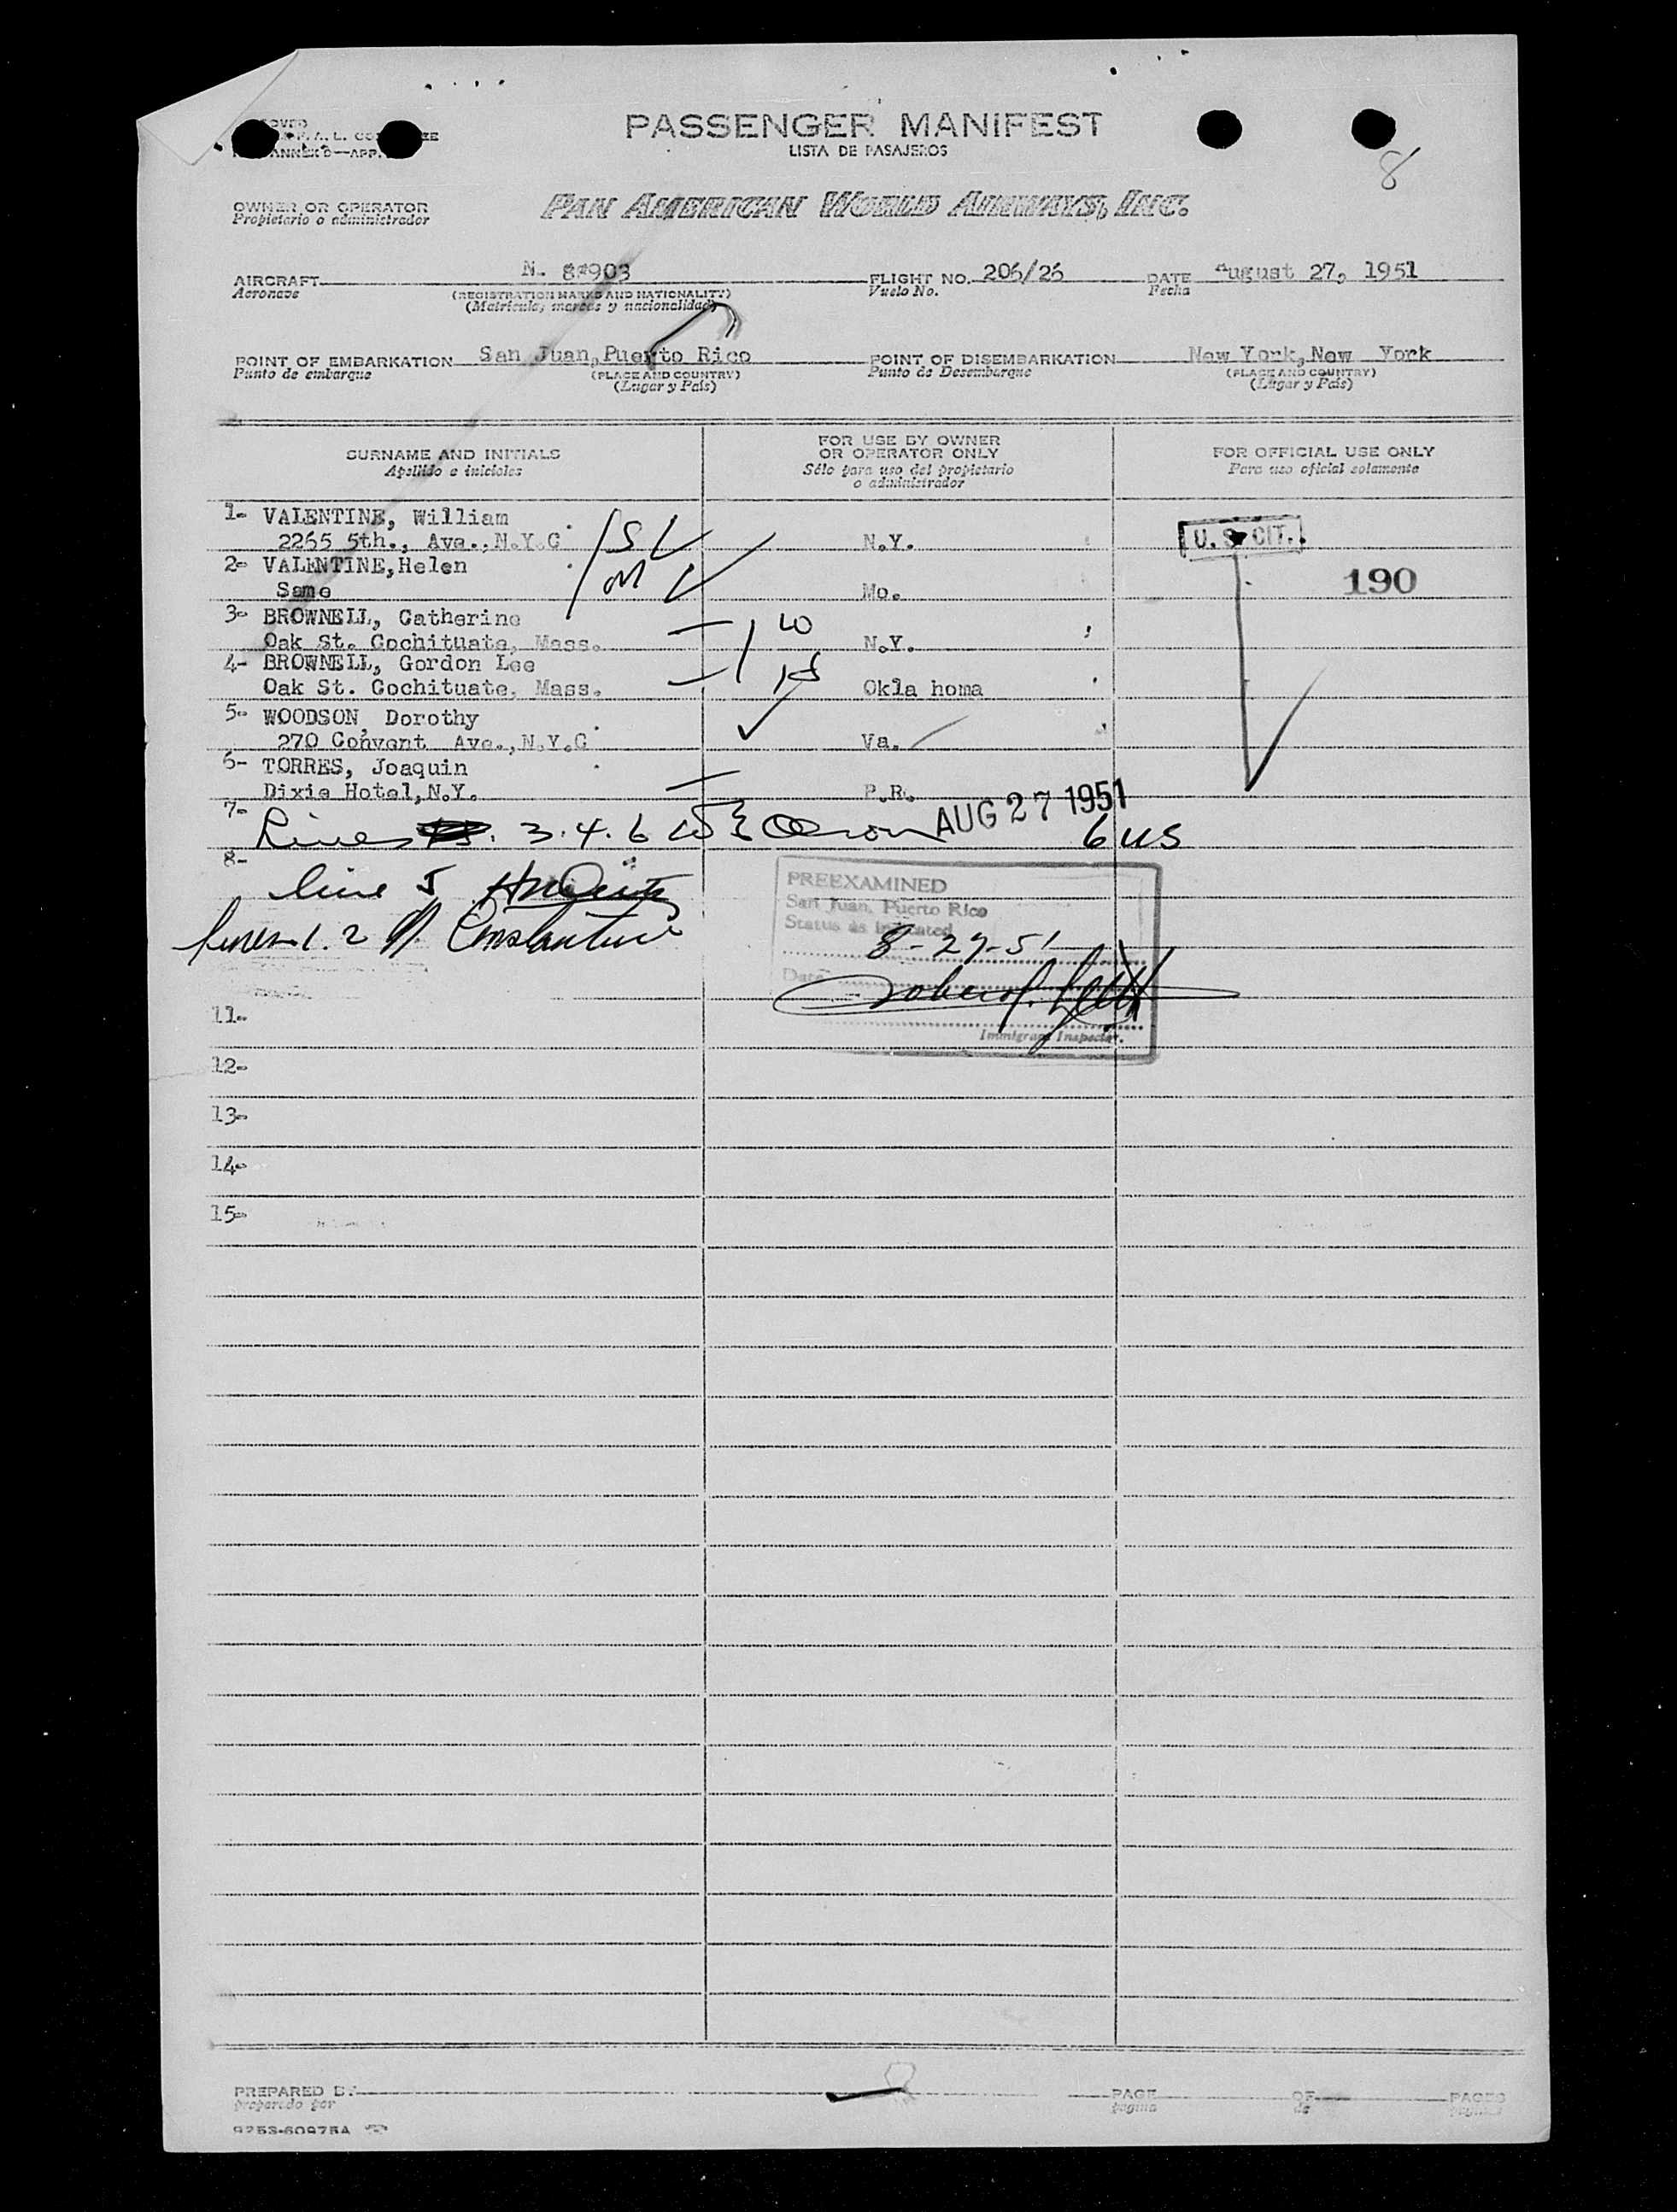 PASSENGER MANIFEST
LISTA DE PASAJEROS
ANNEX D—APP.
8
OWNER OR OPERATOR
Propietario o administrador
PAN AMERICAN WORLD AIRWAYS, INC.
AIRCRAFT N- 88903 FLIGHT NO. 206/26 DATE August 27, 1951
Aeronave (REGISTRATION MARKS AND NATIONALITY) Vuelo No. Fecha
(Matrícula, marcas y nacionalidad)
POINT OF EMBARKATION San Juan, Puerto Rico POINT OF DISEMBARKATION New York, New York
Punto de embarque (PLACE AND COUNTRY) Punto de Desembarque (PLACE AND COUNTRY)
(Lugar y País) (Lugar y País)
SURNAME AND INITIALS FOR USE BY OWNER OR OPERATOR ONLY FOR OFFICIAL USE ONLY
Apellido e iniciales Sólo para uso del propietario o administrador Para uso oficial solamente
1- VALENTINE, William
2265 5th., Ave., N.Y.C S N.Y. U.S. CIT.
2- VALENTINE, Helen M 190
Same Mo.
3- BROWNELL, Catherine W
Oak St. Cochituate, Mass. N.Y.
4- BROWNELL, Gordon Lee
Oak St. Cochituate, Mass. Okla homa
5- WOODSON, Dorothy
270 Convent Ave., N.Y.C Va.
6- TORRES, Joaquin
Dixie Hotel, N.Y. P.R.
7- Lines 3.4.6 AUG 27 1951 6 US
8-
line 5
lines 1.2 Constantine
PREEXAMINED
San Juan, Puerto Rico
Status as Indicated
8-27-51
Date
Immigrant Inspector.
11-
12-
13-
14-
15-
PREPARED BY PAGE OF PAGES
preparado por página de páginas
9253-60975A